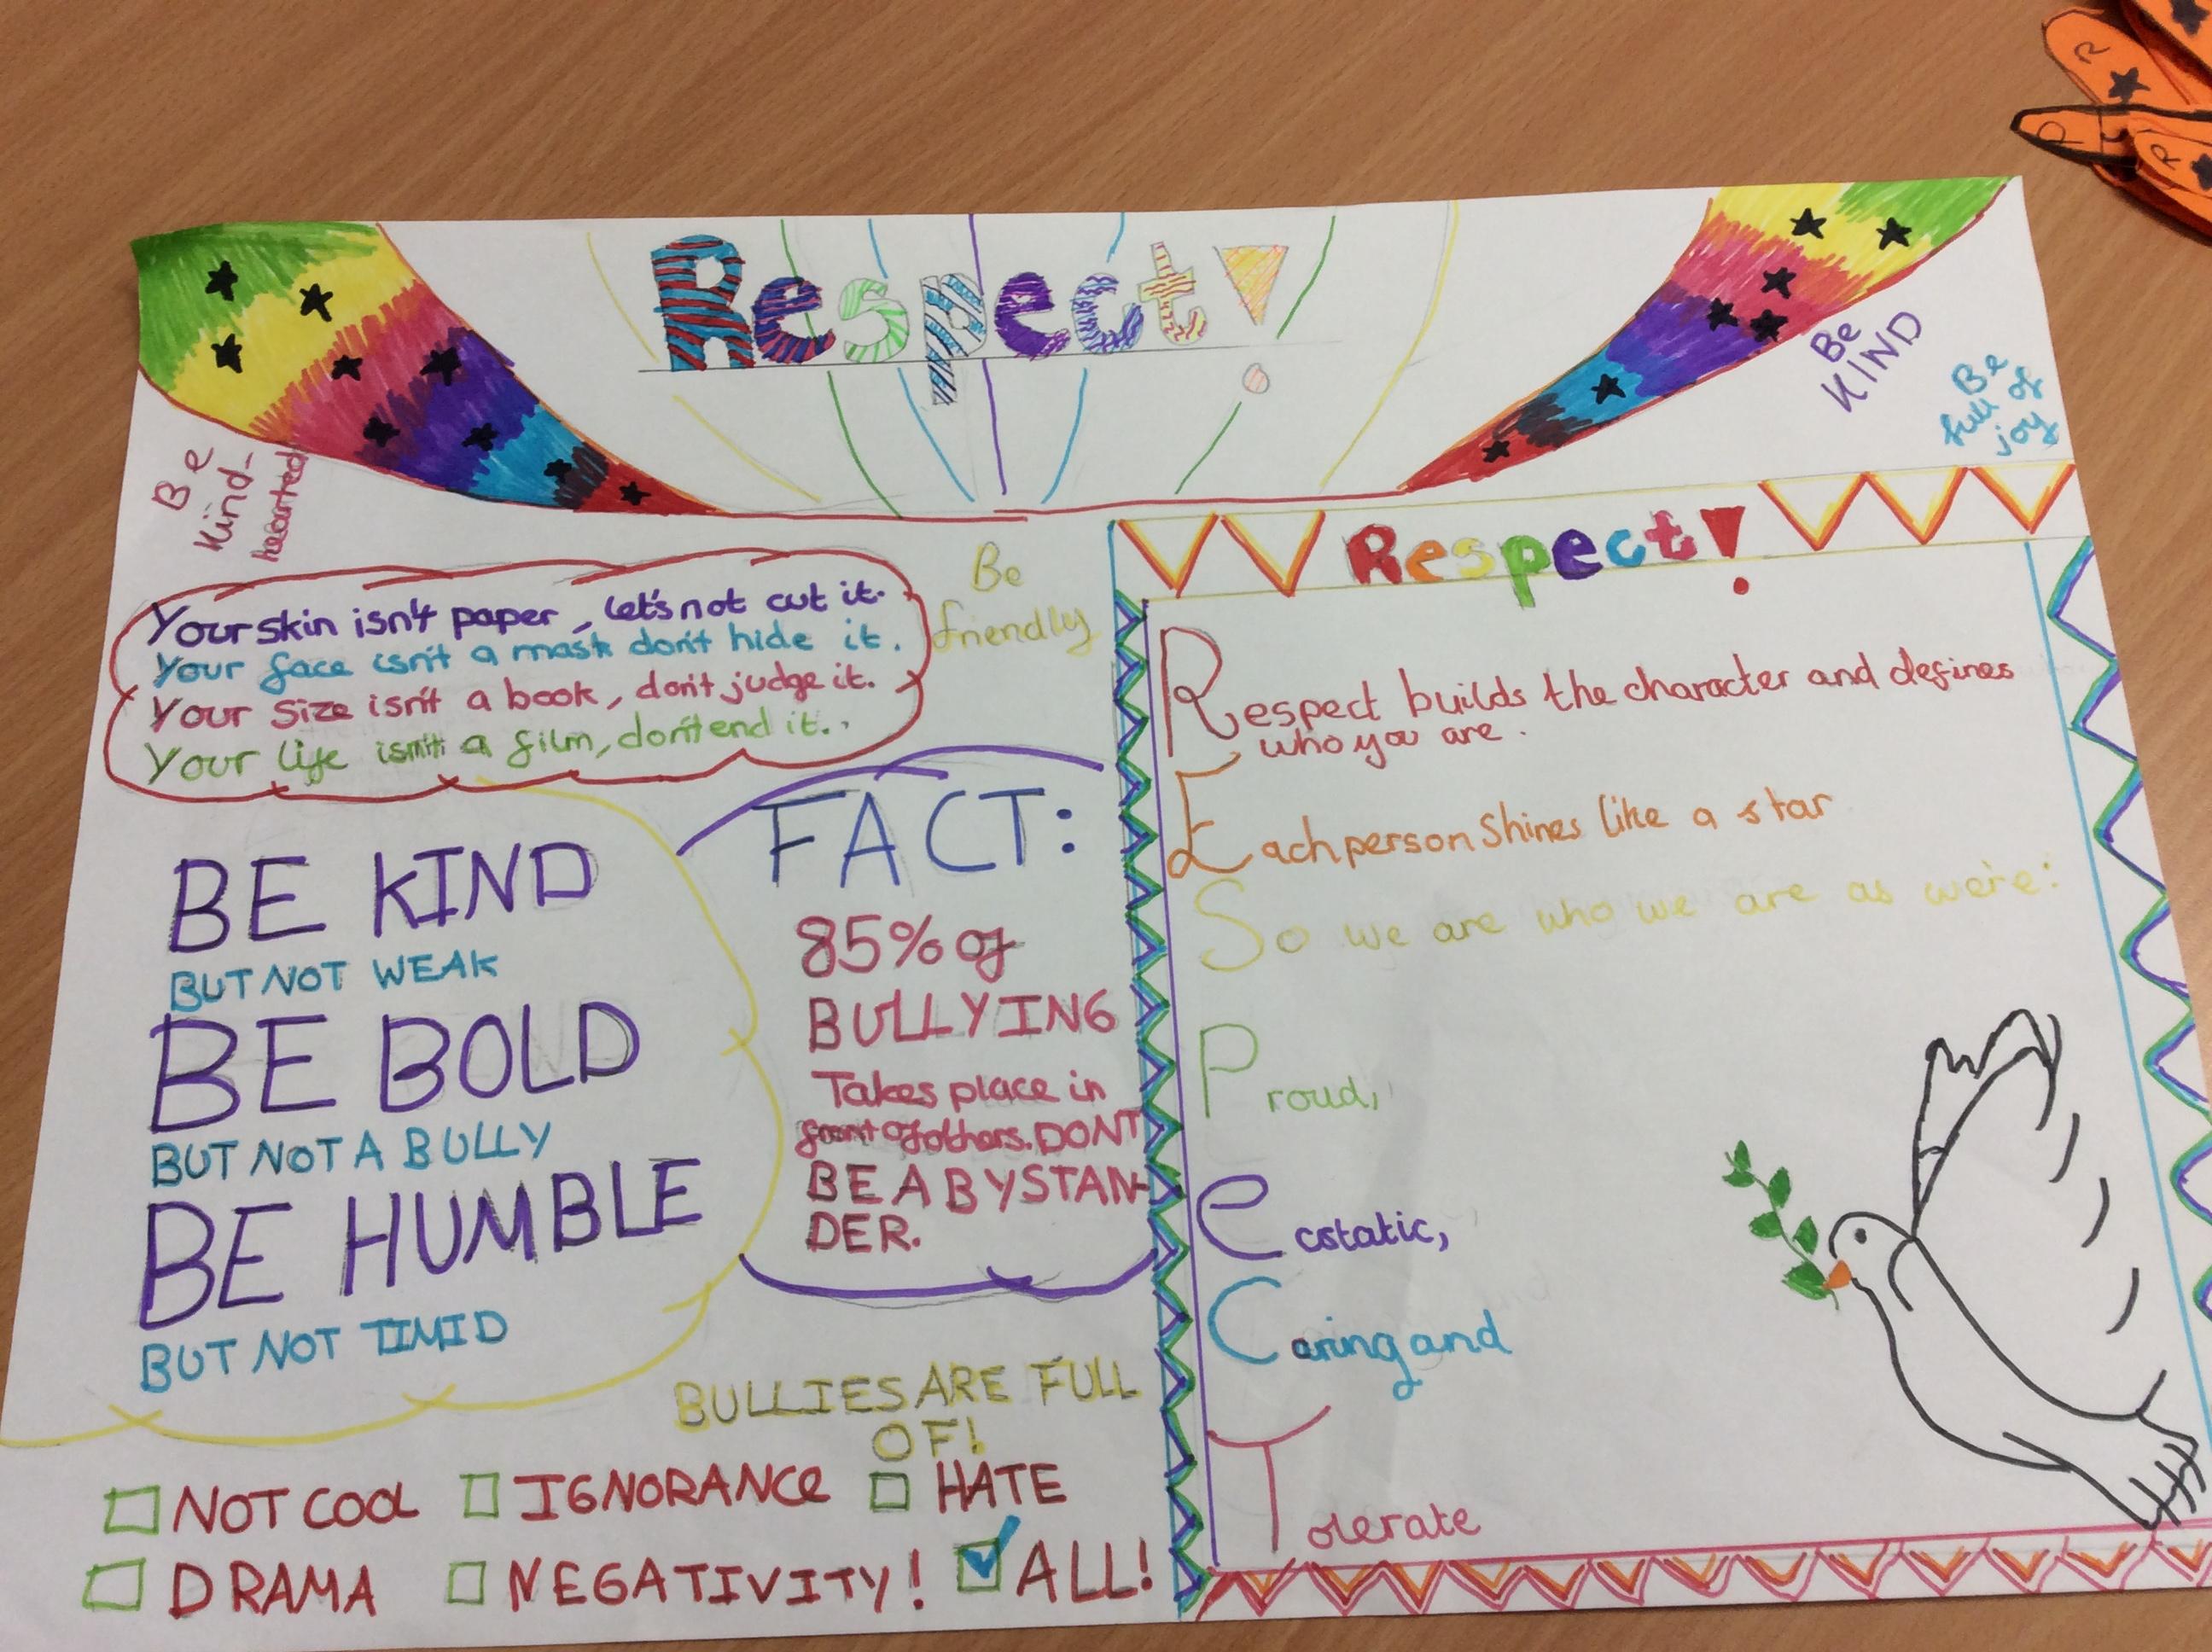 Respect!
Be
Kind-
hearted
Be
KIND
Be
full of
joy
Your skin isn't paper, let's not cut it.
Your face isn't a mask don't hide it.
Your size isn't a book, don't judge it.
Your life isn't a film, don't end it..
Be
friendly
BE KIND
BUT NOT WEAK
BE BOLD
BUT NOT A BULLY
BE HUMBLE
BUT NOT TIMID
FACT:
85% of
BULLYING
Takes place in
front of others. DONT
BE A BYSTAN-
DER.
BULLIES ARE FULL
OF!
NOT COOL
IGNORANCe
HATE
DRAMA
NEGATIVITY!
ALL!
Respect!
Respect builds the character and defines
who you are.
Each person Shines like a star
So we are who we are as we're:
Proud,
ecstatic,
Caring and
Tolerate
R
D
R